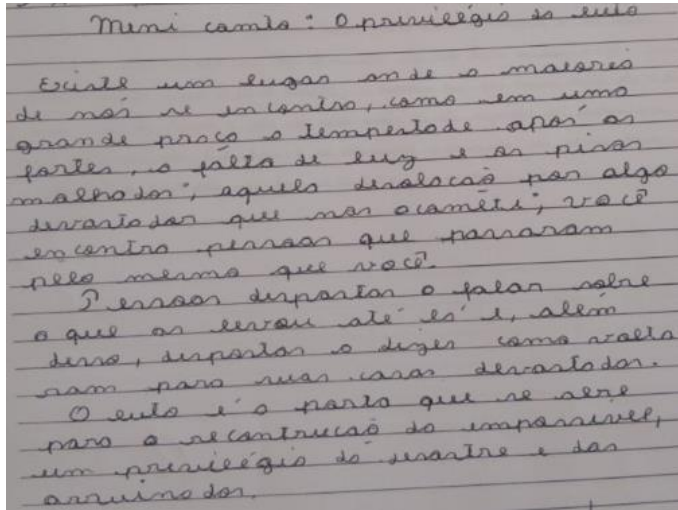 Mini conto: O privilégio do luto
Existe um lugar onde a maioria
de nós se encontra, como em uma
grande praça a tempestade após as
fortes, a falta de luz e os pisos
malhados; aquela desolação por algo
devastador que nos acomete; você
encontra pessoas que passaram
pelo mesmo que você.
Pessoas dispostas a falar sobre
o que os levou até lá e, além
disso, dispostas a dizer como volta
ram para suas casas devastadas.
O luto é a porta que se abre
para a reconstrução do impossível,
um privilégio do desastre e das
arruinados.